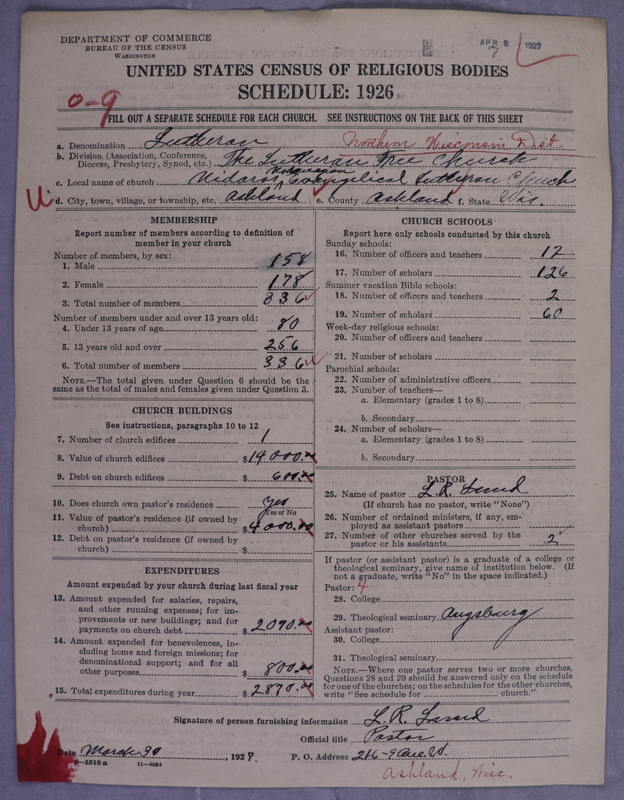 DEPARTMENT OF COMMERCE
BUREAU OF THE CENSUS
WASHINGTON
APR 2 1927
7
UNITED STATES CENSUS OF RELIGIOUS BODIES
SCHEDULE: 1926
0-9
FILL OUT A SEPARATE SCHEDULE FOR EACH CHURCH. SEE INSTRUCTIONS ON THE BACK OF THIS SHEET
a. Denomination Lutheran Northern Wisconsin Dist
b. Division (Association, Conference, Diocese, Presbytery, Synod, etc.) The Lutheran Free Church
Norwegian
c. Local name of church Nidaros Evangelical Lutheran Church
U. d. City, town, village, or township, etc. Ashland e. County Ashland f. State Wis.
MEMBERSHIP
Report number of members according to definition of
member in your church
Number of members, by sex:
1. Male 158
2. Female 178
3. Total number of members 336
Number of members under and over 13 years old:
4. Under 13 years of age 80
5. 13 years old and over 256
6. Total number of members 336
NOTE.—The total given under Question 6 should be the
same as the total of males and females given under Question 3.
CHURCH BUILDINGS
See instructions, paragraphs 10 to 12
7. Number of church edifices 1
8. Value of church edifices $14000.00
9. Debt on church edifices $600.00
10. Does church own pastor's residence yes
Yes or No
11. Value of pastor's residence (if owned by
church) $4000.00
12. Debt on pastor's residence (if owned by
church) $
EXPENDITURES
Amount expended by your church during last fiscal year
13. Amount expended for salaries, repairs,
and other running expenses; for im-
provements or new buildings; and for
payments on church debt $2070.00
14. Amount expended for benevolences, in-
cluding home and foreign missions; for
denominational support; and for all
other purposes $800.00
15. Total expenditures during year $2870.00
CHURCH SCHOOLS
Report here only schools conducted by this church
Sunday schools:
16. Number of officers and teachers 17
17. Number of scholars 126
Summer vacation Bible schools:
18. Number of officers and teachers 2
19. Number of scholars 60
Week-day religious schools:
20. Number of officers and teachers
21. Number of scholars
Parochial schools:
22. Number of administrative officers
23. Number of teachers—
a. Elementary (grades 1 to 8)
b. Secondary
24. Number of scholars—
a. Elementary (grades 1 to 8)
b. Secondary
PASTOR
25. Name of pastor L. R.
(If church has no pastor, write "None")
26. Number of ordained ministers, if any, em-
ployed as assistant pastors
27. Number of other churches served by the
pastor or his assistants 2
If pastor (or assistant pastor) is a graduate of a college or
theological seminary, give name of institution below. (If
not a graduate, write "No" in the space indicated.)
Pastor: 4
28. College
29. Theological seminary Augsburg
Assistant pastor:
30. College
31. Theological seminary
NOTE.—Where one pastor serves two or more churches,
Questions 28 and 29 should be answered only on the schedule
for one of the churches; on the schedules for the other churches,
write "See schedule for church."
Signature of person furnishing information L. R.
Official title Pastor
Date March 30, 1927. P. O. Address 216-9 Ave. W.
8-5518a 11-9064
Ashland, Wisc.